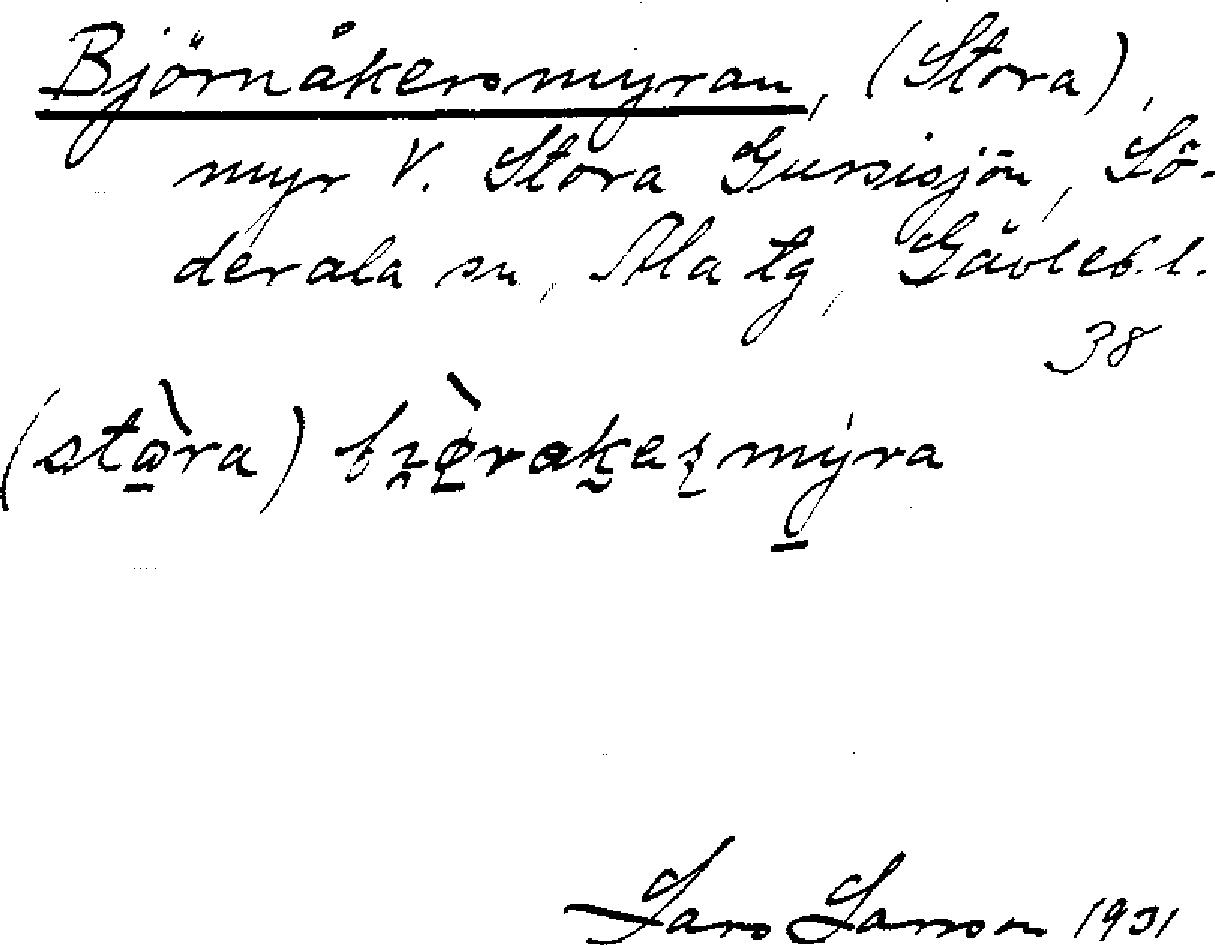 Björnåkersmyran, (Stora),
myr V. Stora Gussisjön, Sö-
derala sn, Ala tg, Gävleb. l.
38
(stora)
Lars Larsson 1931